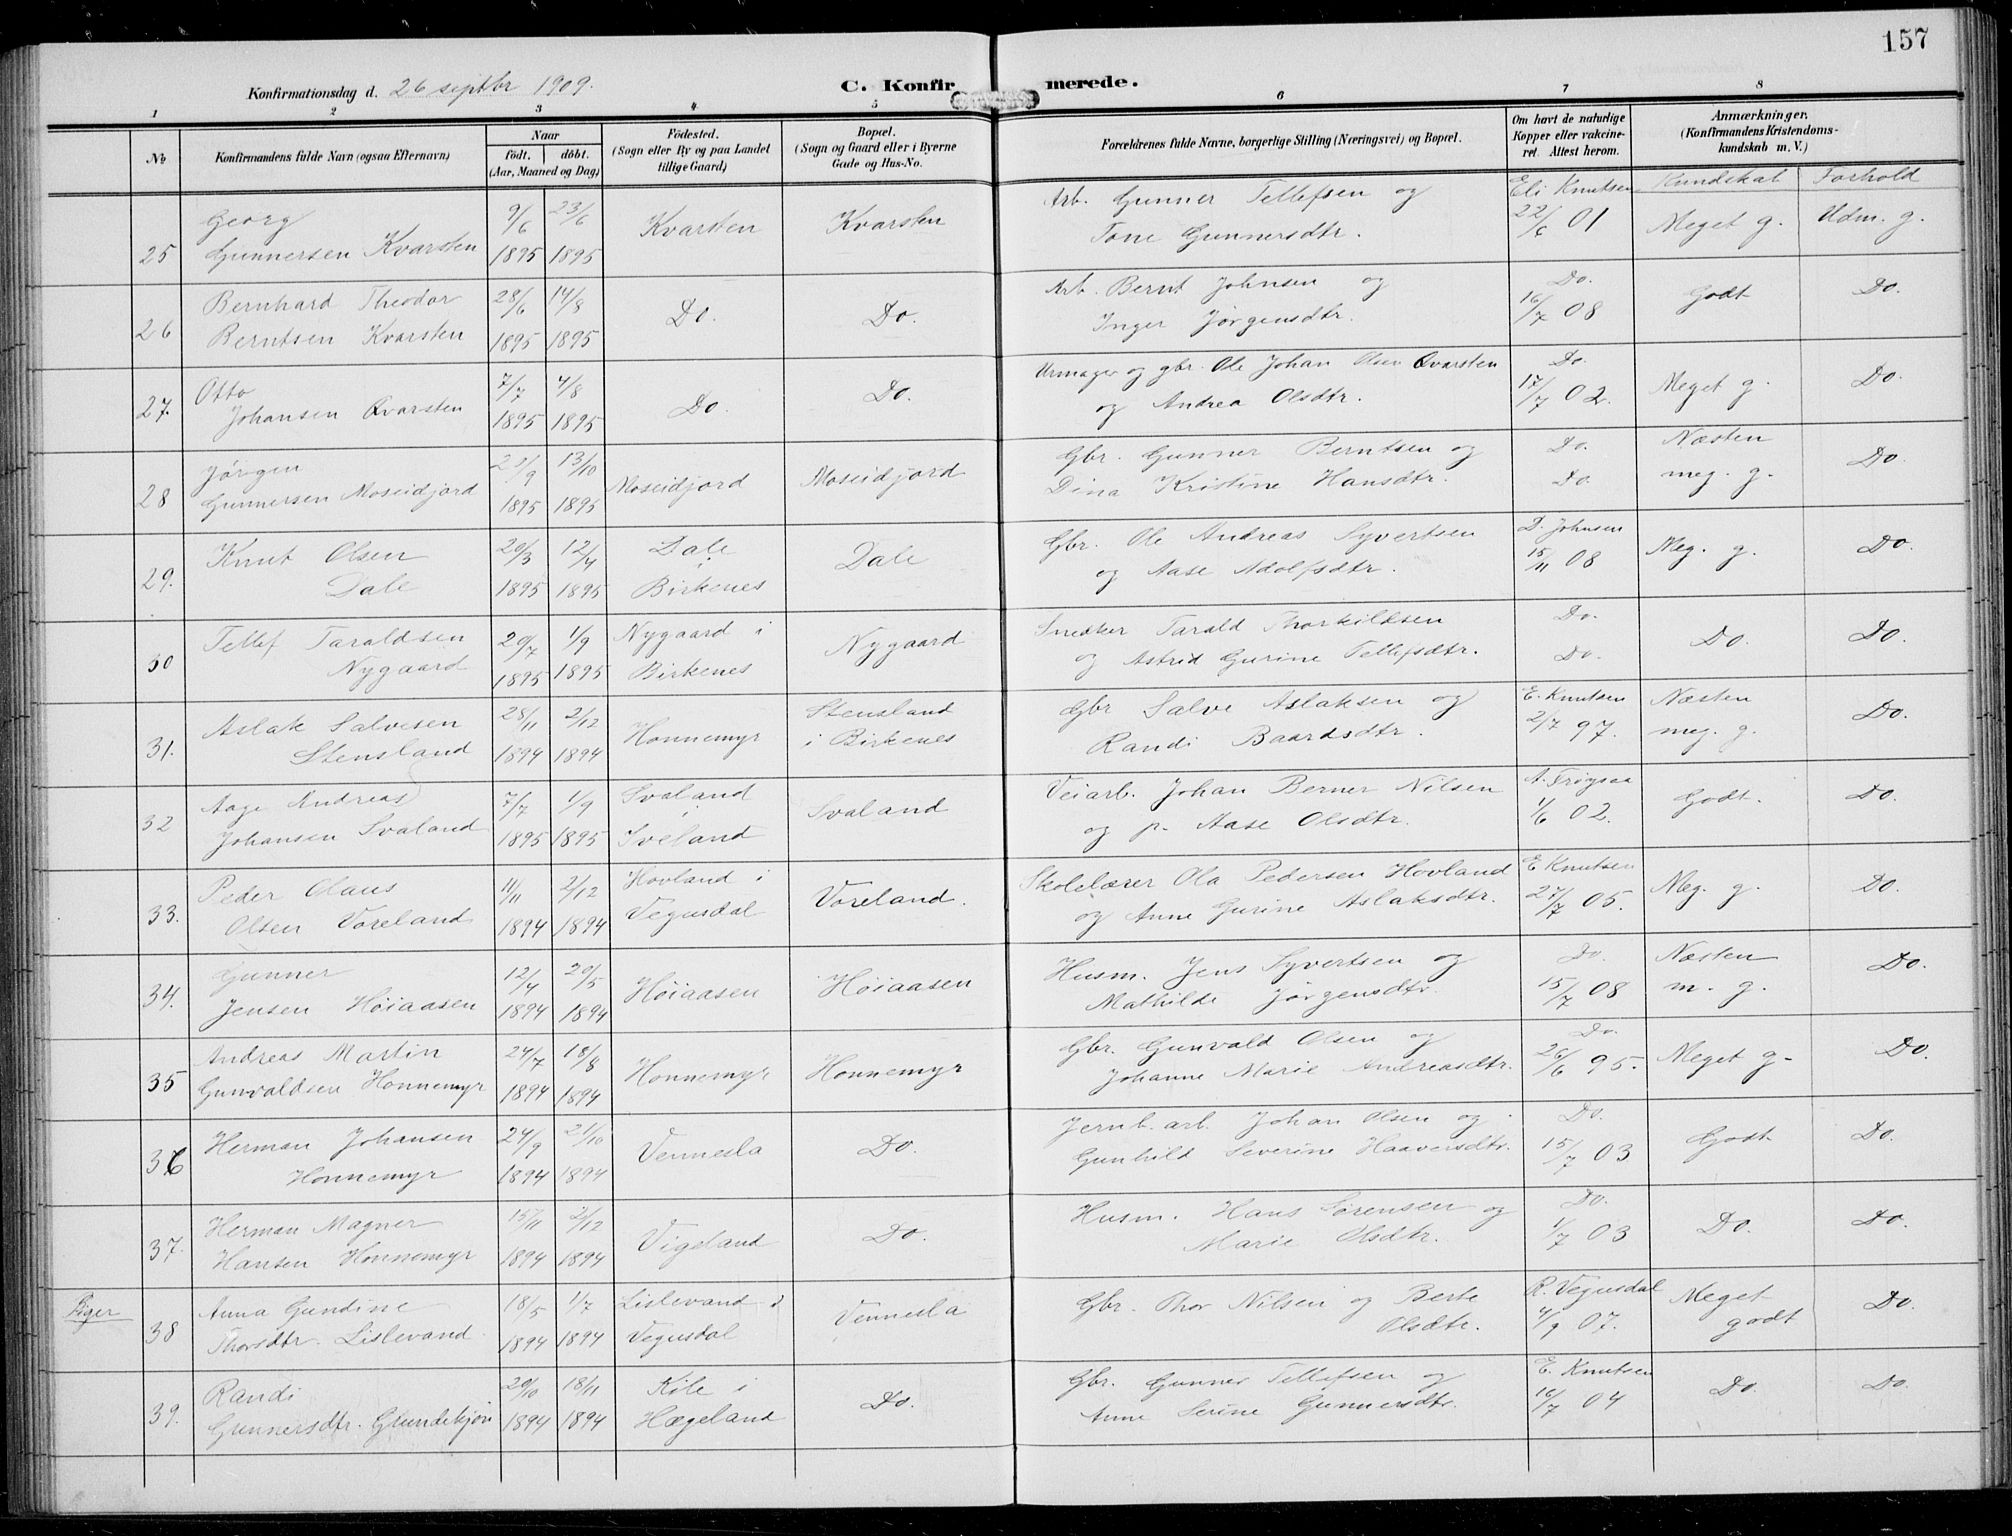 157
Konfirmationsdag d. 26 septbr 1909.
C. Konfirmerede.
1 2 3 4 5 6 7 8
No
Konfirmandens fulde Navn (ogsaa Efternavn)
Naar
födt. döbt.
(Aar, Maaned og Dag)
Födested.
(Sogn eller By og paa Landet
tillige Gaard)
Bopæl.
(Sogn og Gaard eller i Byerne
Gade og Hus-No.
Forældrenes fulde Navne, borgerlige Stilling (Næringsvei) og Bopæl.
Om havt de naturlige
Kopper eller vakcine-
ret. Attest herom.
Anmærkninger.
(Konfirmandens Kristendoms-
kundskab m. V.)
Kundskab Forhold
Georg 9/6 23/6 Kvarsten Kvarsten Arb. Gunner Tellefsen og Eli Knutsen
25 Gunnersen Kvarsten 1895 1895 Tone Gunnersdtr. 22/6 01 Meget g. Udm. g.
Bernhard Theodor 28/6 14/8 Do. Do. Arb. Bernt Johnsen og Do. Godt Do.
26 Berntsen Kvarsten 1895 1895 Inger Jørgensdtr. 16/7 08
Otto 7/7 4/8 Do. Do. Urmager og gbr. Ole Johan Olsen Qvarsten Do. Meget g. Do.
27. Johansen Qvarsten 1895 1895 og Andrea Olsdtr. 17/7 02.
Jørgen 13/10 Moseidjord Moseidjord Gbr. Gunner Berntsen og Do. Næsten Do
28 Gunnersen Moseidjord 1895 1895 Dina Kristine Hansdtr. Do. meg. g.
Knut Olsen 20/3 12/4 Dale Dale Gbr. Ole Andreas Syvertsen D. Johnsen Meg. g. Do.
29. Dale 1895 1895 Birkenes og Aase Adolfsdtr. 15/11 08
Tellef Taraldsen 20/7 1/9 Nygaard i Nygaard Snedker Tarald Thorkildsen Do. Do. Do.
30 Nygaard 1895 1895 Birkenes og Astrid Gurine Tellefsdtr. Do.
Aslak Salvesen 28/11 2/12 Honnemyr Stensland Gbr Salve Aslaksen og E. Knutsen Næsten Do.
31. Stensland 1894 1894 i Birkenes Randi Baardsdtr. 2/7 97. meg. g.
Aage Andreas 7/7 1/9 Svaland Svaland Veiarb. Johan Berner Nilsen A. Frøysaa Godt. Do.
32 Johansen Svaland 1895 1895 Iveland og p. Aase Olsdtr. 1/6 02.
Peder Olaus 11/11 2/12 Hovland i Voreland. Skolelærer Ola Pedersen Hovland E Knutsen Meg. g. Do.
33. Olsen Voreland 1894 1894 Vegusdal og Anne Gurine Aslaksdtr. 27/7 05.
Gunner 12/4 20/5 Høiaasen Høiaasen Husm. Jens Syvertsen og Do. Næsten Do.
34. Jensen Høiaasen 1894 1894 Mathilde Jørgensdtr. 15/7 08 m. g.
Andreas Martin 24/7 18/8 Honnemyr Honnemyr Gbr. Gunvald Olsen og Do. Meget g- Do.
35 Gunvaldsen Honnemyr 1894 1894 Johanne Marie Andreasdtr. 26/6 95.
Herman Johansen 24/9 21/10 Vennesla Do. Jernb. arb. Johan Olsen og Do. Godt Do.
36 Honnemyr 1894 1894 Gunhild Severine Haaversdtr. 15/7 03
Herman Magner 15/11 2/12 Vigeland Do. Husm. Hans Sørensen og Do. Do. Do.
37. Hansen Honnemyr 1894 1894 Marie Olsdtr. 1/7 03
Piger Anna Gundine 18/5 1/7 Lislevand i Vennesla Gbr. Thor Nilsen og Berte R. Vegusdal Meget Do.
38 Thorsdtr. Lislevand 1894 1894 Vegusdal Olsdtr. 4/9 07. godt
Randi 20/10 18/11 Kile i Do. Gbr. Gunner Tellefsen og E. Knutsen Do. Do.
39. Gunnersdtr. Grundekjøn 1894 1894 Hægeland Anne Serine Gunnersdtr. 16/7 04